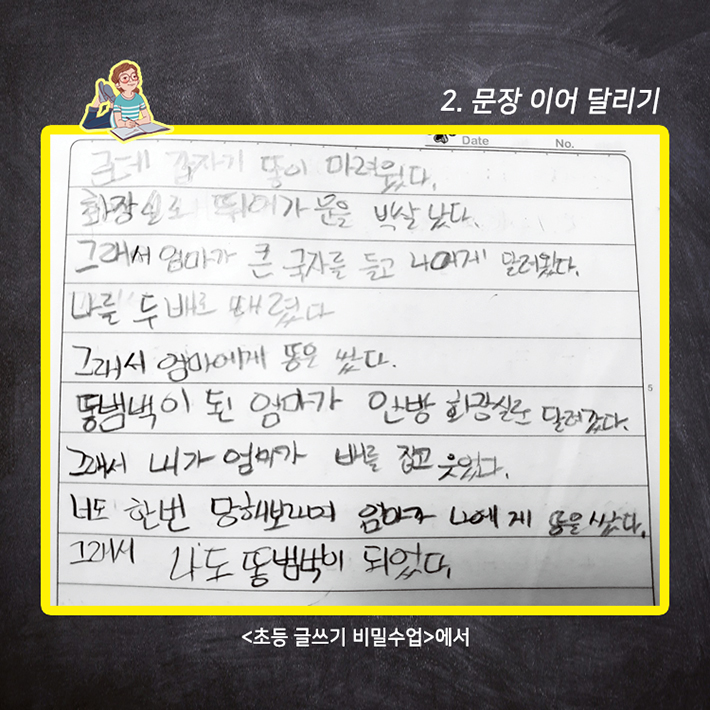 2. 문장 이어 달리기
Date No.
근데 갑자기 똥이 마려웠다.
화장실로 뛰어가 문을 박살 냈다.
그래서 엄마가 큰 국자를 들고 나에게 달려왔다.
나를 두 배로 때렸다
그래서 엄마에게 똥을 쌌다.
똥범벅이 된 엄마가 안방 화장실로 달려갔다.
그래서 내가 엄마가 배를 잡고 웃었다.
너도 한번 당해보라며 엄마가 나에게 똥을 쌌다.
5
그래서 나도 똥범벅이 되었다.
<초등 글쓰기 비밀수업>에서